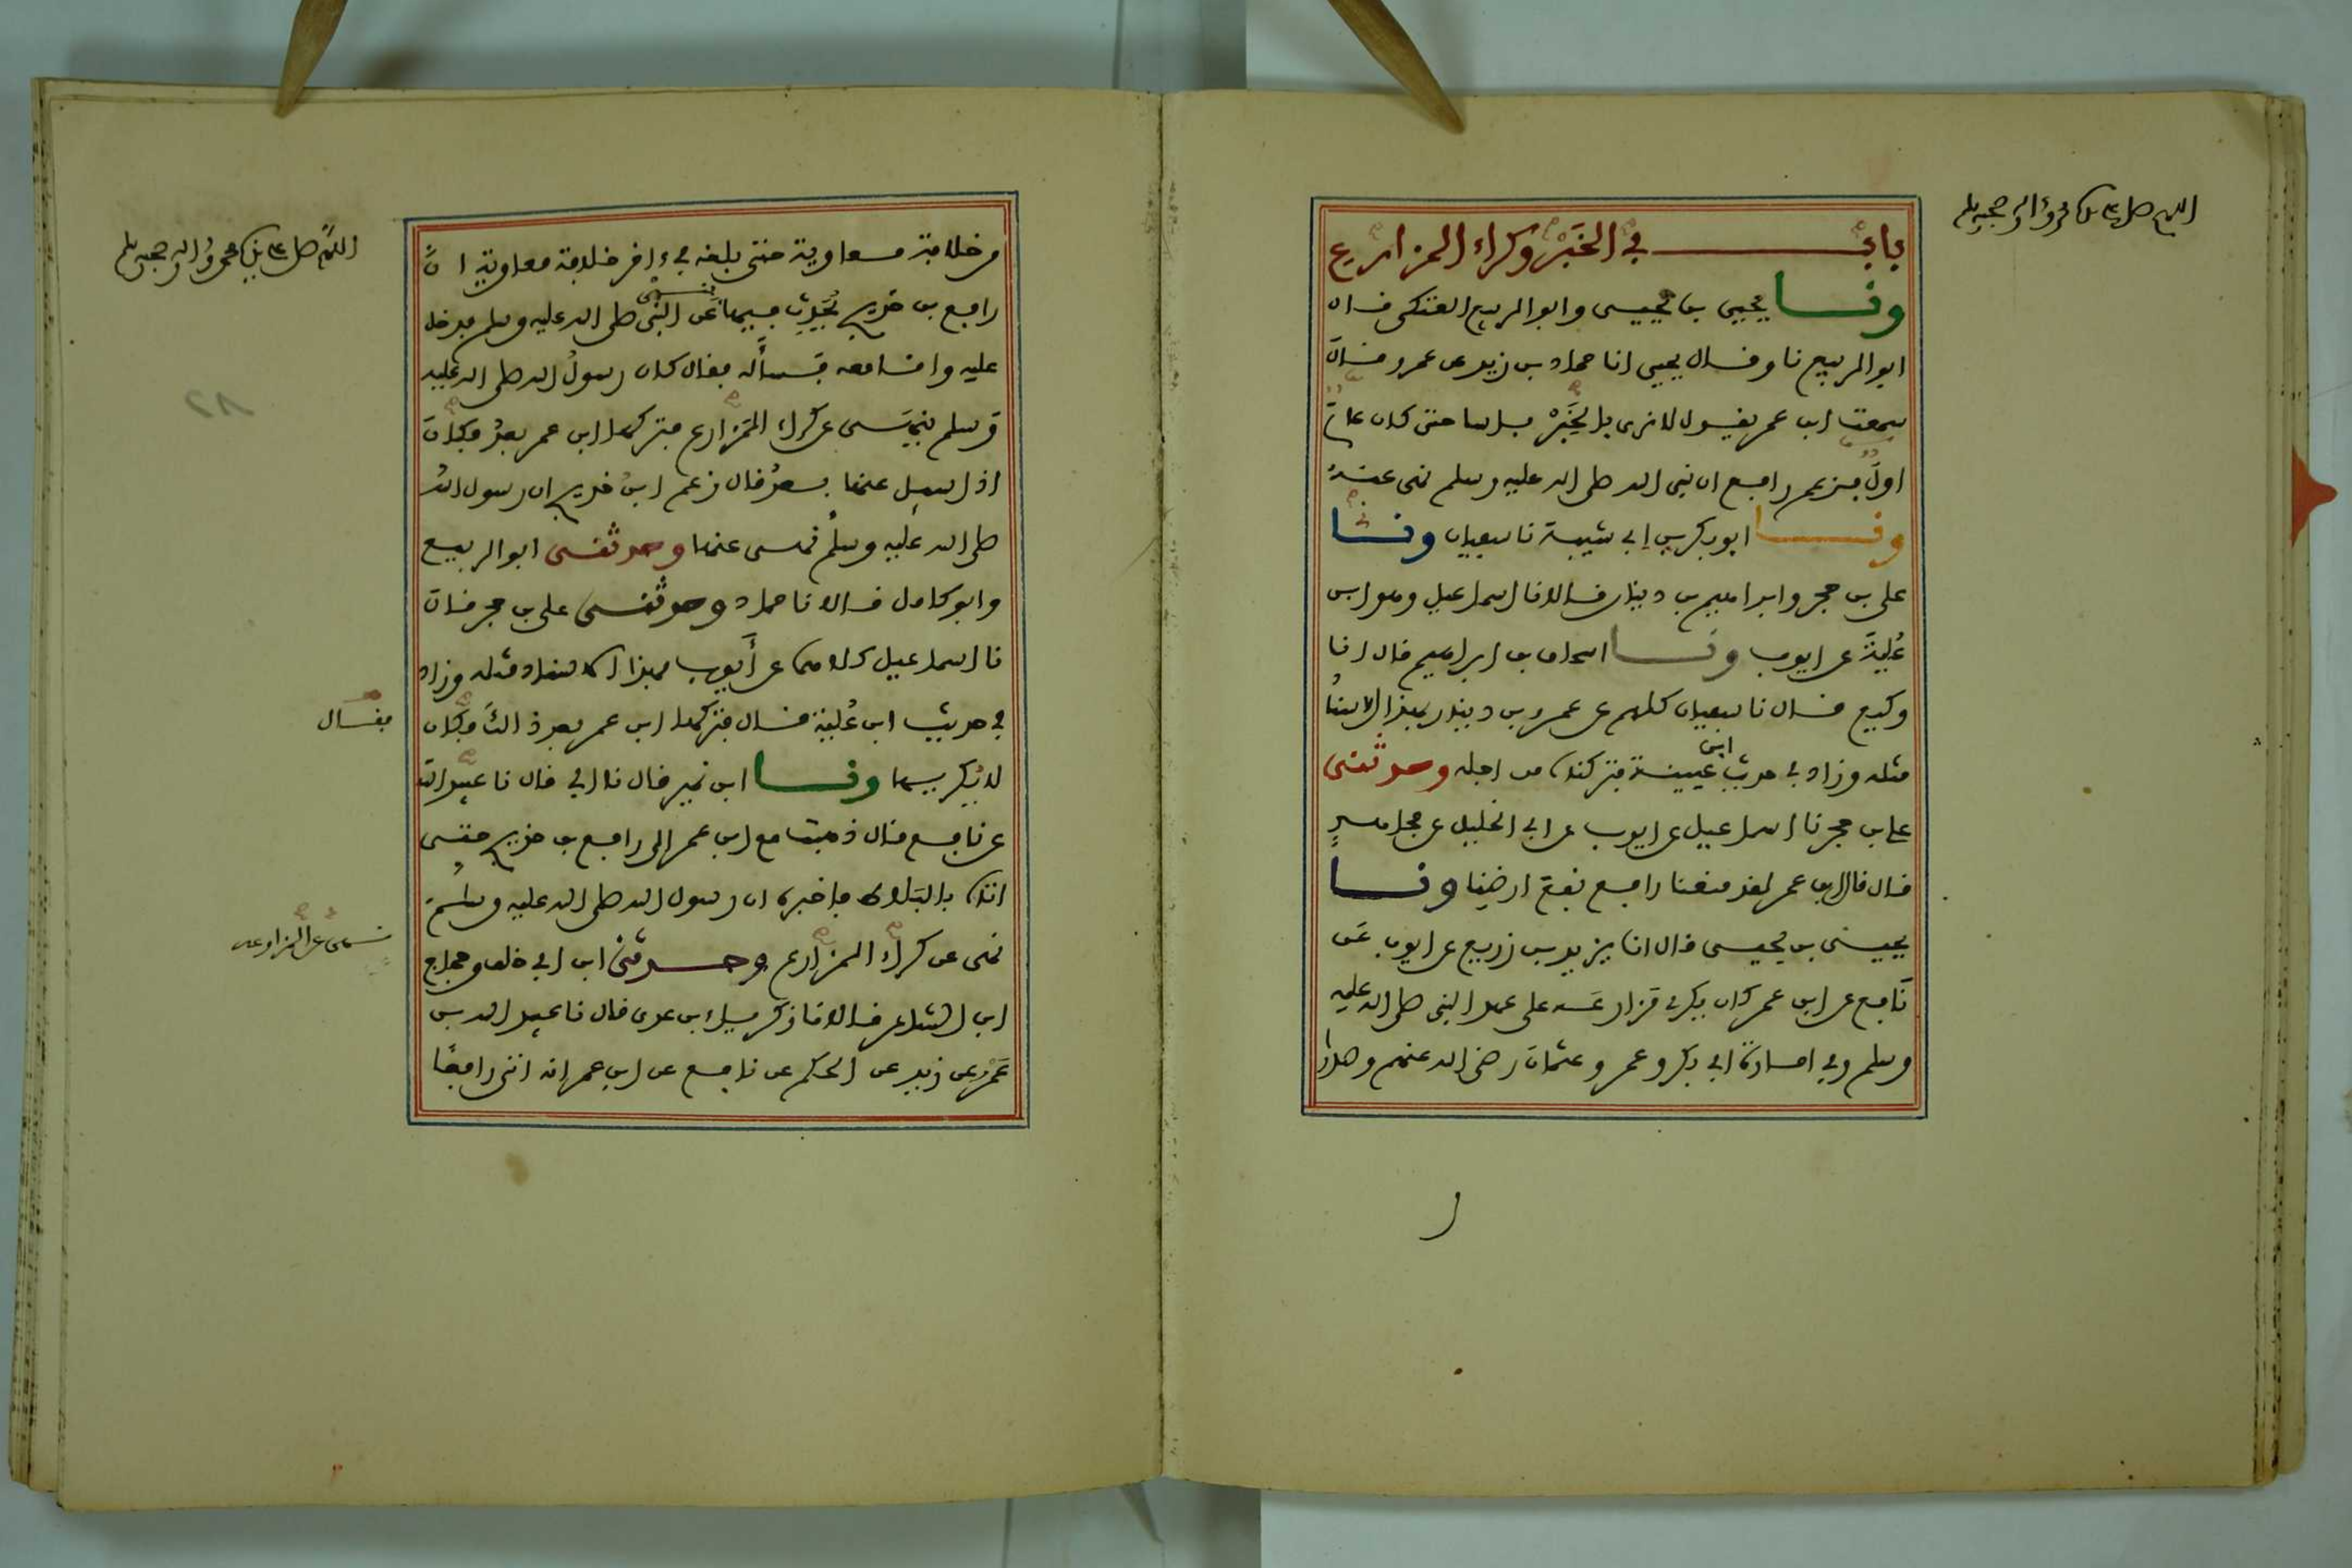 اللهم صل على نبيك محمد وءاله وصحبه وسلم
باب في الخبر وكراء المزارع
ونا يحيى بن يحيى وابو الربيع العتكى قال
ابو الربيع نا وقال يحيى انا حماد بن زيد عن عمرو قال
سمعت ابن عمر يقول لا نرى بالخبر باسا حتى كان عام
اول فزعم رافع ان نبي الله صلى الله عليه وسلم نهى عنه
ونا ابو بكر بن ابي شيبة نا سفيان ونا
علي بن حجر وابراهيم بن دينار قالا نا اسماعيل وهو ابن
علية عن ايوب ونا اسحاق بن ابراهيم قال انا
وكيع قال نا سفيان كلهم عن عمرو بن دينار بهذا الاسناد
مثله وزاد في حديث ابن عيينة فتركناه من اجله وحدثنى
علي بن حجر نا اسماعيل عن ايوب عن ابي الخليل عن مجاهد
قال قال ابن عمر لقد منعنا رافع نفع ارضنا ونا
يحيى بن يحيى قال انا يزيد بن زريع عن ايوب عن
نافع عن ابن عمر كان يكرى مزارعه على عهد النبي صلى الله عليه
وسلم وفي امارة ابي بكر وعمر وعثمان رضي الله عنهم وصدرا
اللهم صل على نبيك محمد وءاله وصحبه وسلم
من خلافة معاوية حتى بلغه في ءاخر خلافة معاوية ان
رافع بن خديج يحدث فيها بنهي عن النبي صلى الله عليه وسلم فدخل
عليه وانا معه فسأله فقال كان رسول الله صلى الله عليه
وسلم ينهى عن كراء المزارع فتركها ابن عمر بعد وكان
اذا سيل عنها بعد قال زعم ابن خديج ان رسول الله
صلى الله عليه وسلم نهى عنها وحدثنى ابو الربيع
وابو كامل قالا نا حماد وحدثنى علي بن حجر قال
نا اسماعيل كلاهما عن أيوب بهذا الاسناد مثله وزاد
في حديث ابن علية قال فتركها ابن عمر بعد ذالك وكان
فقال
لا يكريها ونا ابن نمير قال نا ابي قال نا عبيد الله
عن نافع قال ذهبت مع ابن عمر الى رافع بن خديج حتى
اتاه بالبلاط فاخبره ان رسول الله صلى الله عليه وسلم
نهى عن كراء المزارع وحدثنى ابن ابي خلف وحجاج
نهى عن المزارعة
ابن الشاعر قالا نا زكرياء بن عدى قال نا عبيد الله بن
عمرو عن زيد عن الحكم عن نافع عن ابن عمر انه اتى رافعا